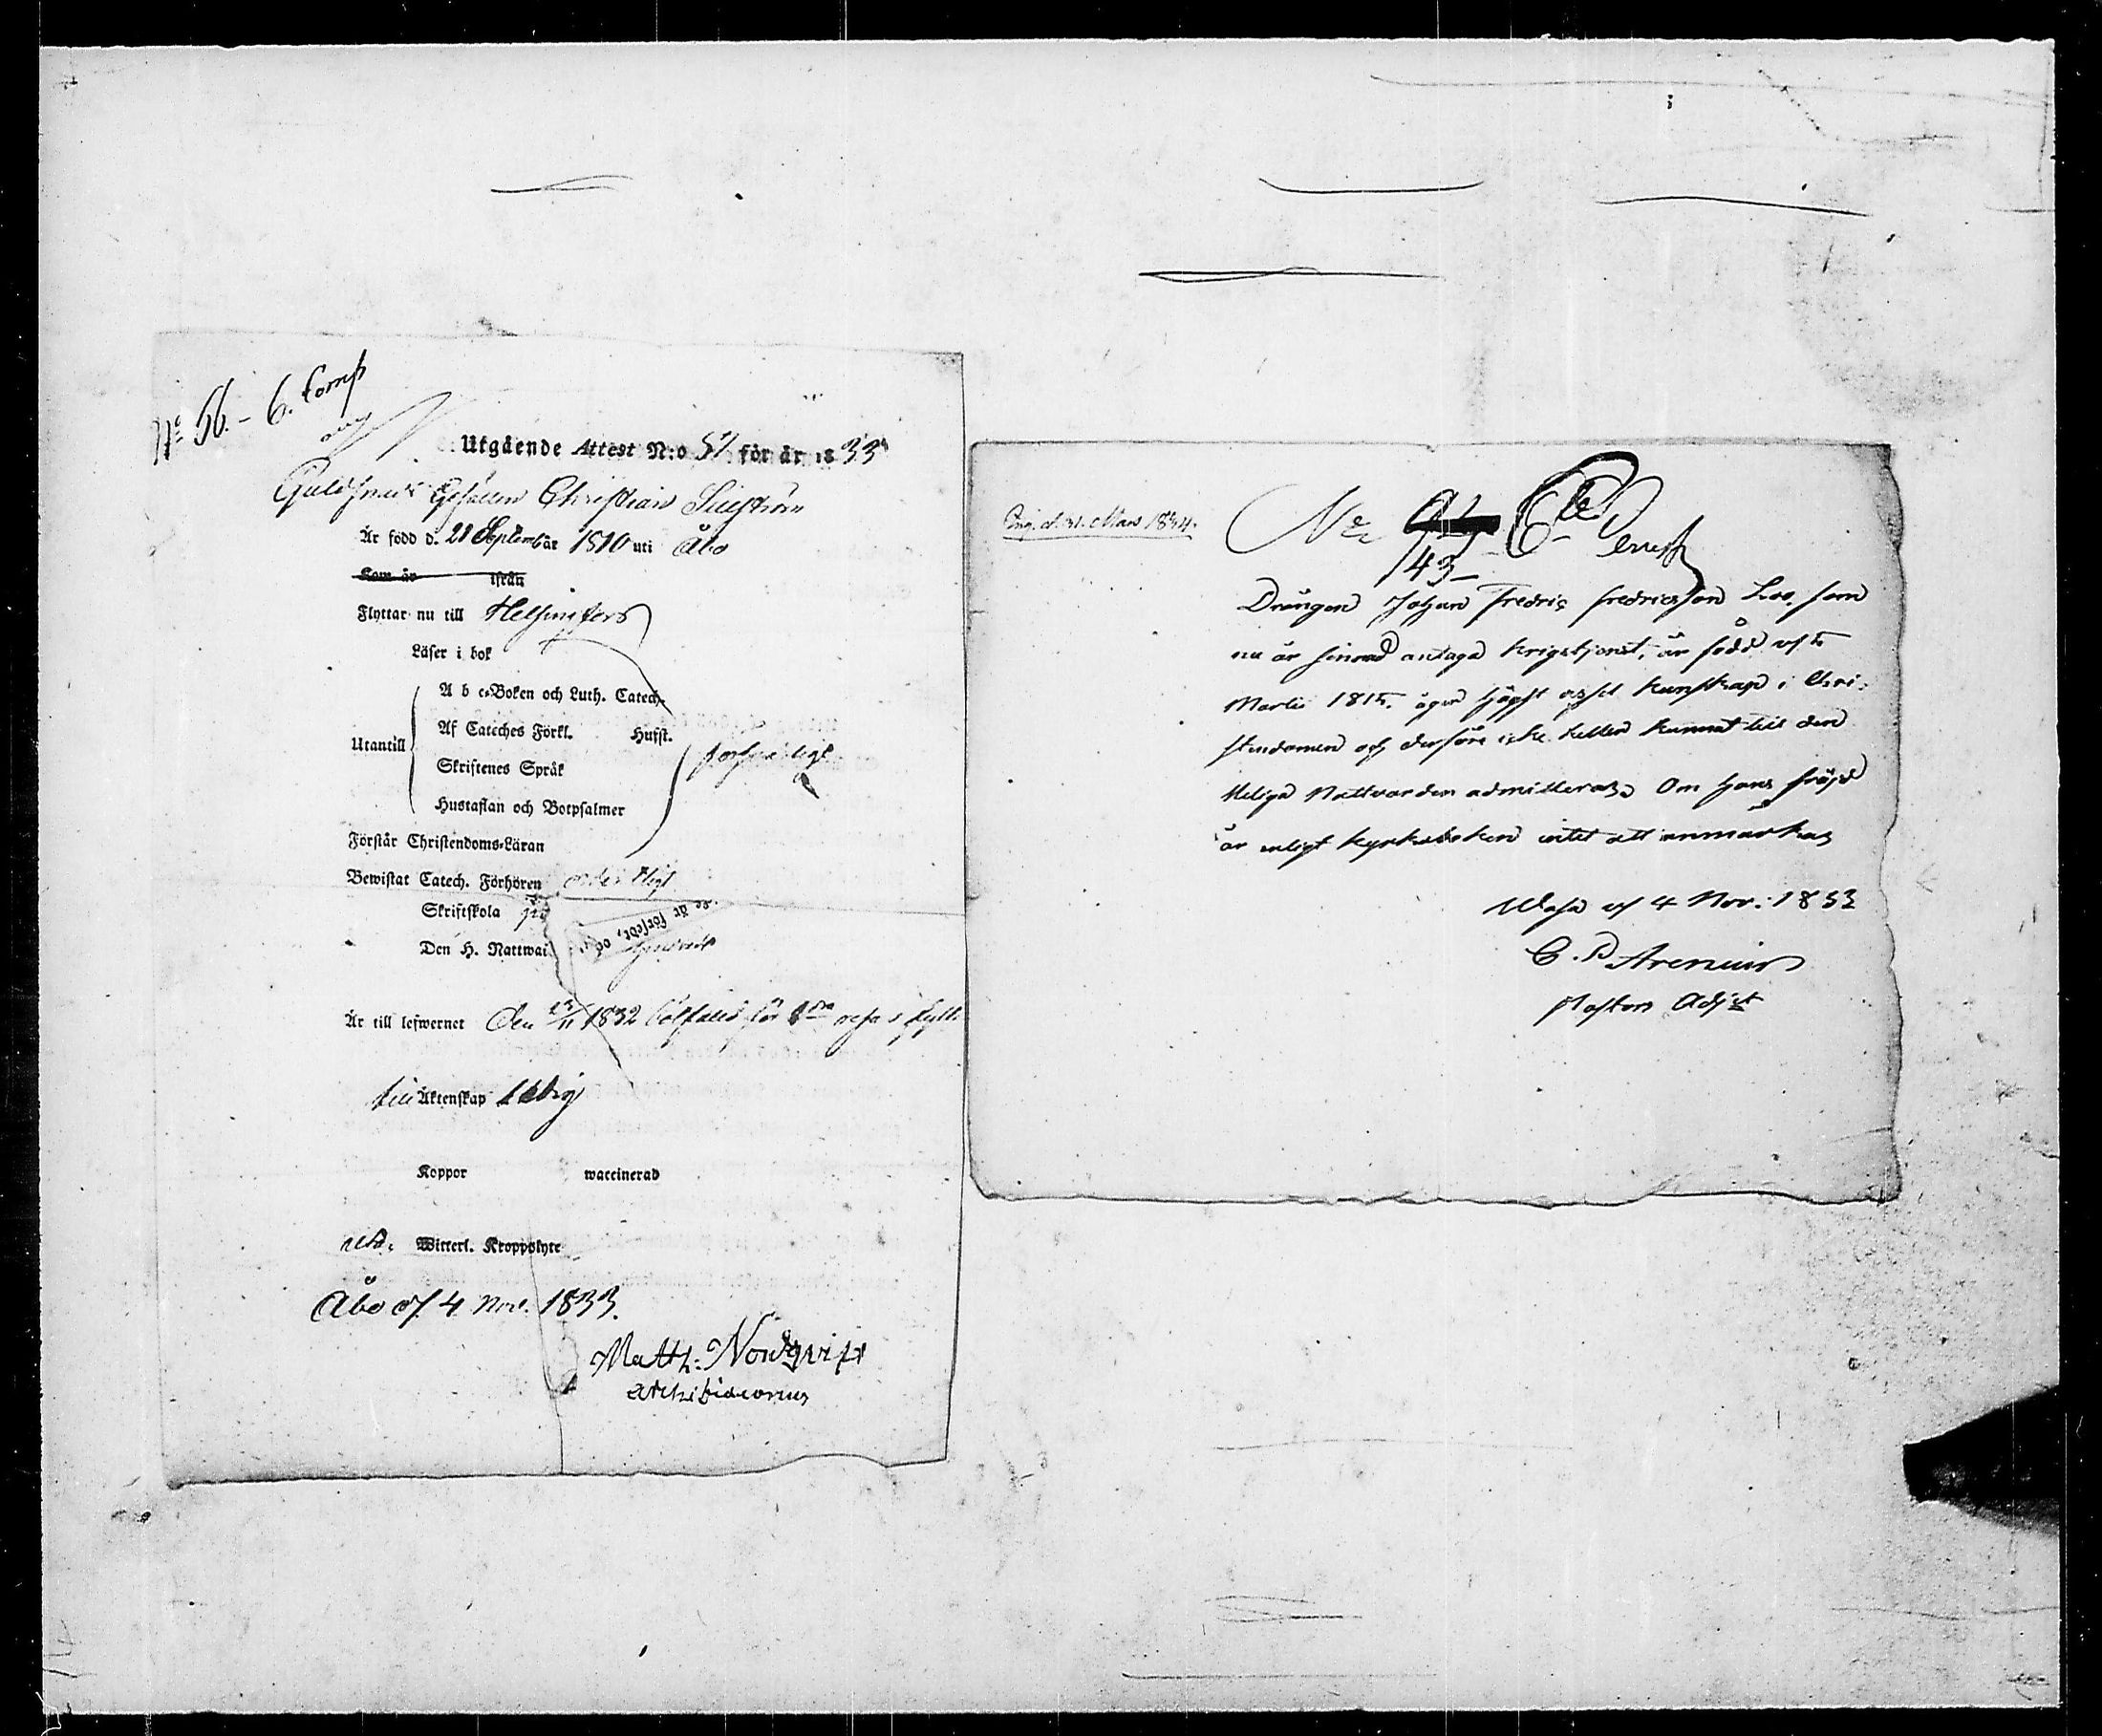 No 56. - 6. Comp
Utgående Attest N:o 57 för år 1833
Guldsmeds Gesällen Christian
Är född d. 21 September år 1810 uti Åbo
Kom år ifrån
Flyttar nu till Helsingfors
Läser i bok
A b c-Boken och Luth. Catech.
Af Cateches Förkl. Hufst.
Utantill
Skriftenes Språk
Hustaflan och Botpsalmer
försvarligt
Förstår Christendoms-Läran
Bewistat Catech. Förhören ordentligt
Skriftskola
är försedt, och
Den H. Nattwar
Är till lefwernet Den 23/11 1832 bötfäld för 1sta resa i fylleri
till Äktenskap ledig
Koppor waccinerad
Witterl. Kroppslyte
Åbo d. 4 Nov. 1833.
Matth: Nordqvist
Archidiaconus
d. 31. Mars 1834.
No
43 -
Drängen Johan Fredric Fredricsson Loo, som
nu är sinnad antaga krigstjenst, är född d. 5
Martii 1815. äger högst ussel kunskap i Chri-
stendomen och derföre icke heller kunnat till den
Heliga Nattvarden admitteras. Om hans fräjd
är enligt kyrkoboken intet att anmärka,
Wasa d. 4 Nov: 1833
C. D Arenius
Pastors Adjct